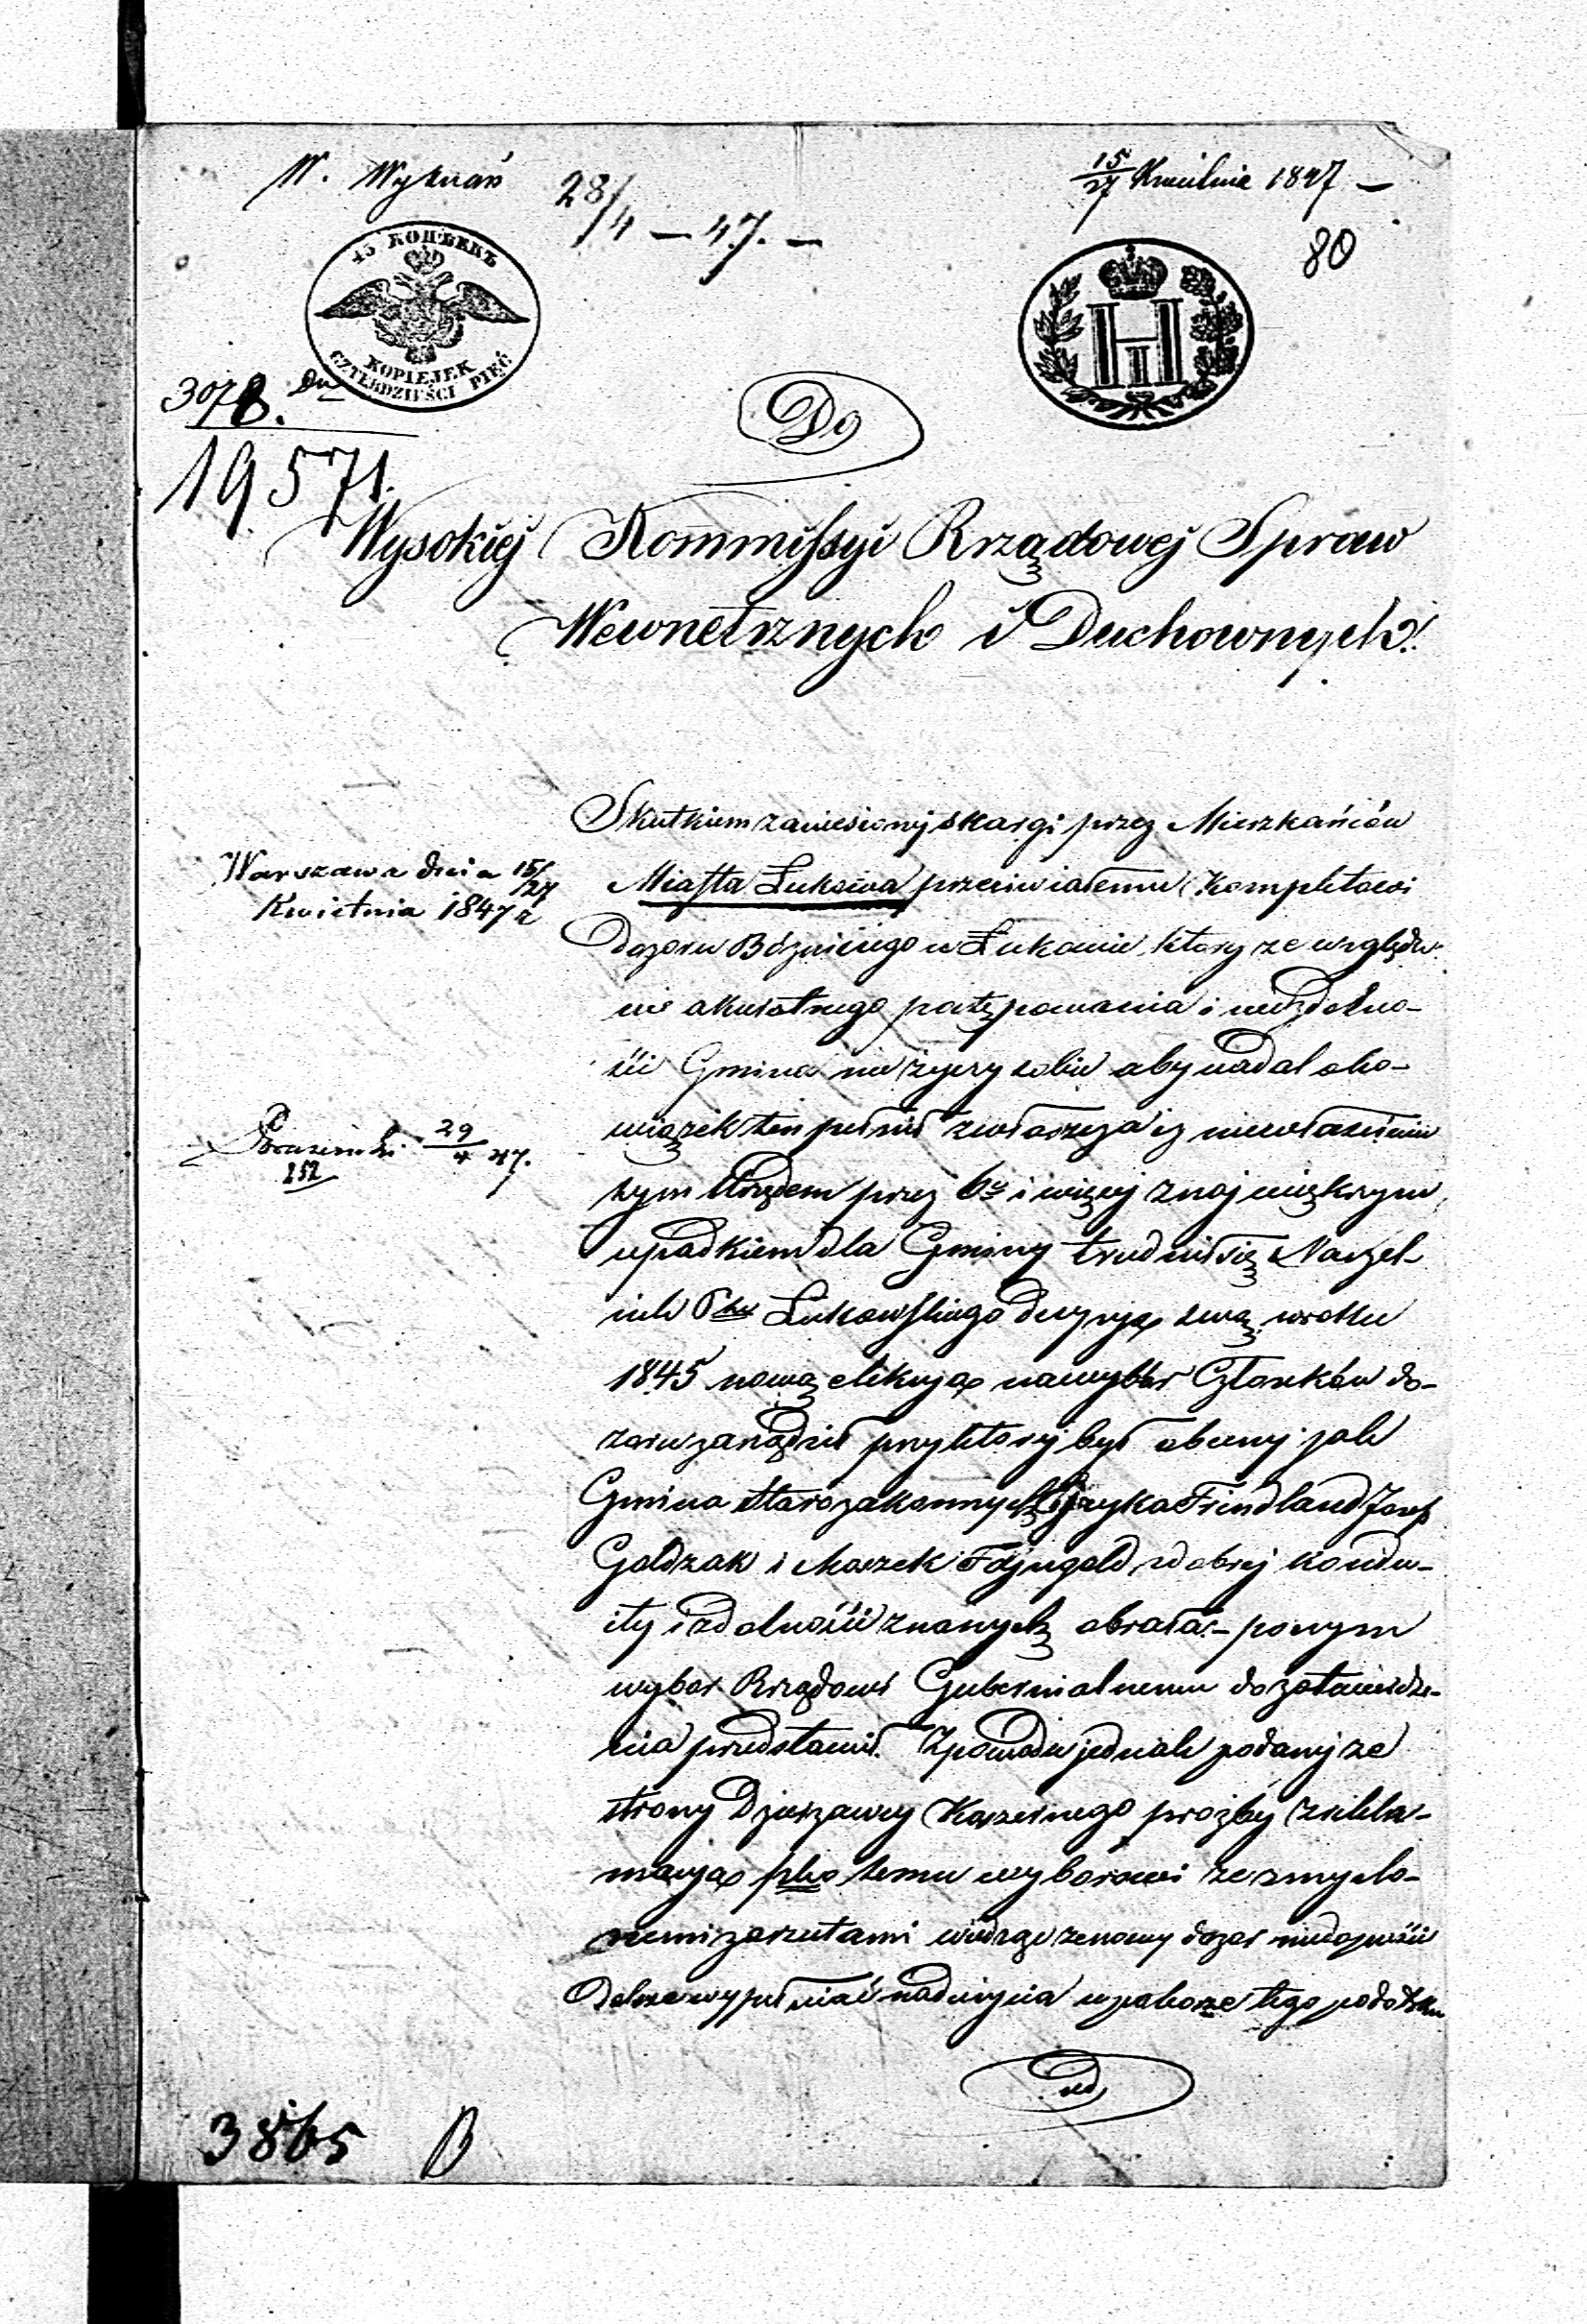 W. Wyznań 28/4 – 47. –
15/27 Kwietnia 1847 –
80
45 КОПѢЕКЪ
KOPIEJEK
CZTERDZIEŚCI PIĘĆ
H
II
3078.
19571.
Do
Wysokiej Kommissyi Rządowej Spraw
Wewnetrznych i Duchownych!
Warszawa dnia 15/27
Kwietnia 1847 r
29/4 47.
252
Skutkiem zaniesionej skargi przez Mieszkańców
Miasta Łukowa przeciw całemu Kompletowi
dozoru Bóżniczego w Łukowie, ktory ze względu
nie akuratnego postępowania i niezdolno-
ści Gmina nie życzy sobie aby nadal obo-
wiązek ten pełnił zwłaszcza iż niewłaściwie
tym Urzędem przez 6ć i więcej z najwiękrzym
upadkiem dla Gminy trudnił się Naczel-
nik Ptu Łukowskiego decyzyą swą w roku
1845 nową elekcyą na wybór Członków do-
zoru zarządził przy ktorej był obecny jak
Gmina Starozakonnych Frindland Josef
Goldzak i Moszek Fajngold z dobrej kondu-
ity i zdolności znanych obrała – poczym
wybor Rządowi Gubernialnemu do zatwierdze-
nia przedstawił. Z powodu jednak podanej ze
strony Dzierzawcy Koszernego prożby z rekla-
macyą pko temu wyborowi ze zmyślo-
nemi zarzutami widząc ze nowy dozor niedopuści
Dalsze wypełniać nadużycia w poborze tego podatku
3865 B